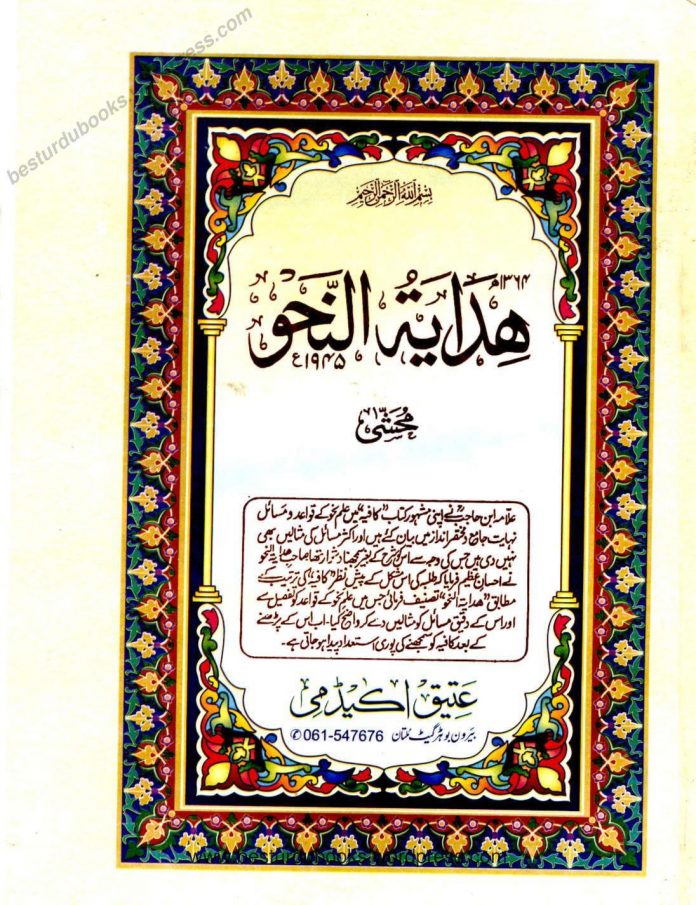 besturdubooks.wordpress.com
بسم اللہ الرحمن الرحیم
۱۳۶۴ھ
ھدایة النحو
۱۹۴۵ع
محشّٰی
علامہ ابن حاجبؒ نے اپنی مشہور کتاب "کافیہ" میں علم نحو کے قواعد و مسائل
نہایت جامع و مختصر انداز میں بیان کئے ہیں اور اکثر مسائل کی مثالیں بھی
نہیں دی ہیں جس کی وجہ سے اس کو شرح کے بغیر سمجھنا دشوار تھا صاحب ھدایة النحو
نے احسان عظیم فرمایا کہ طلبہ کی اس مشکل کے پیش نظر "کافیہ" کی ترتیب کے
مطابق "ھدایة النحو" تصنیف فرمائی جس میں علم نحو کے قواعد کو تفصیل سے
اور اس کے دقیق مسائل کو مثالیں دے کر واضح کیا۔ اب اس کے پڑھنے
کے بعد کافیہ کو سمجھنے کی پوری استعداد پیدا ہو جاتی ہے۔
عتیق اکیڈمی
بیرون بوہڑ گیٹ ملتان 061-547676 ✆